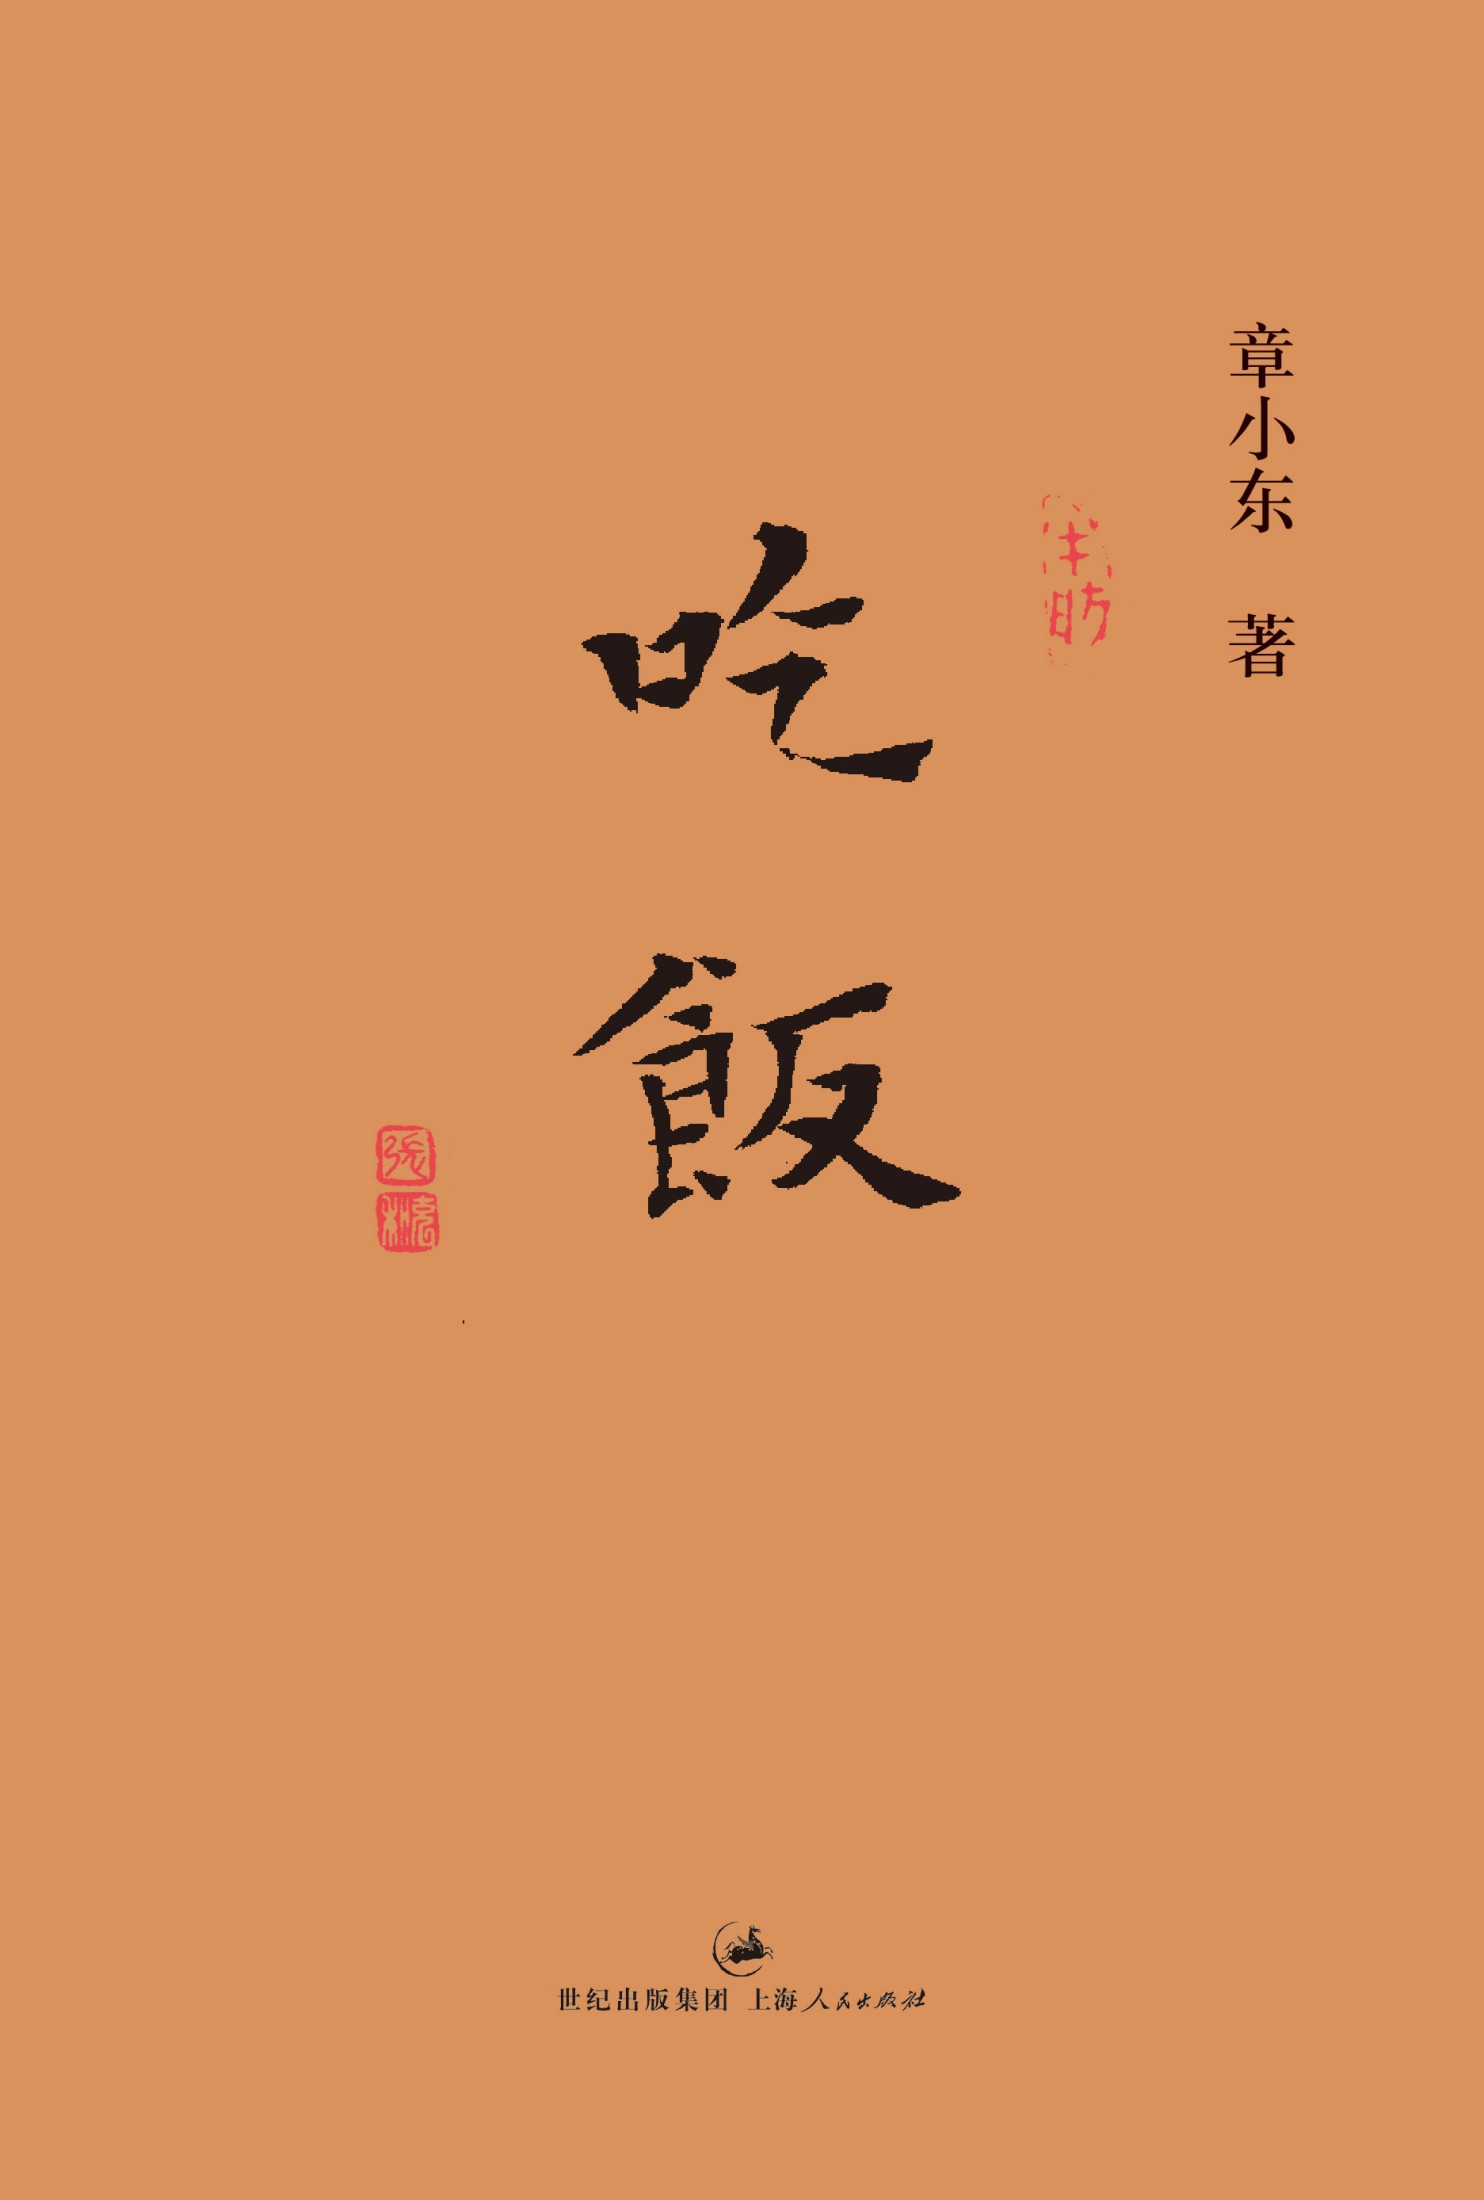 章小东 著
吃飯
世纪出版集团 上海人民出版社